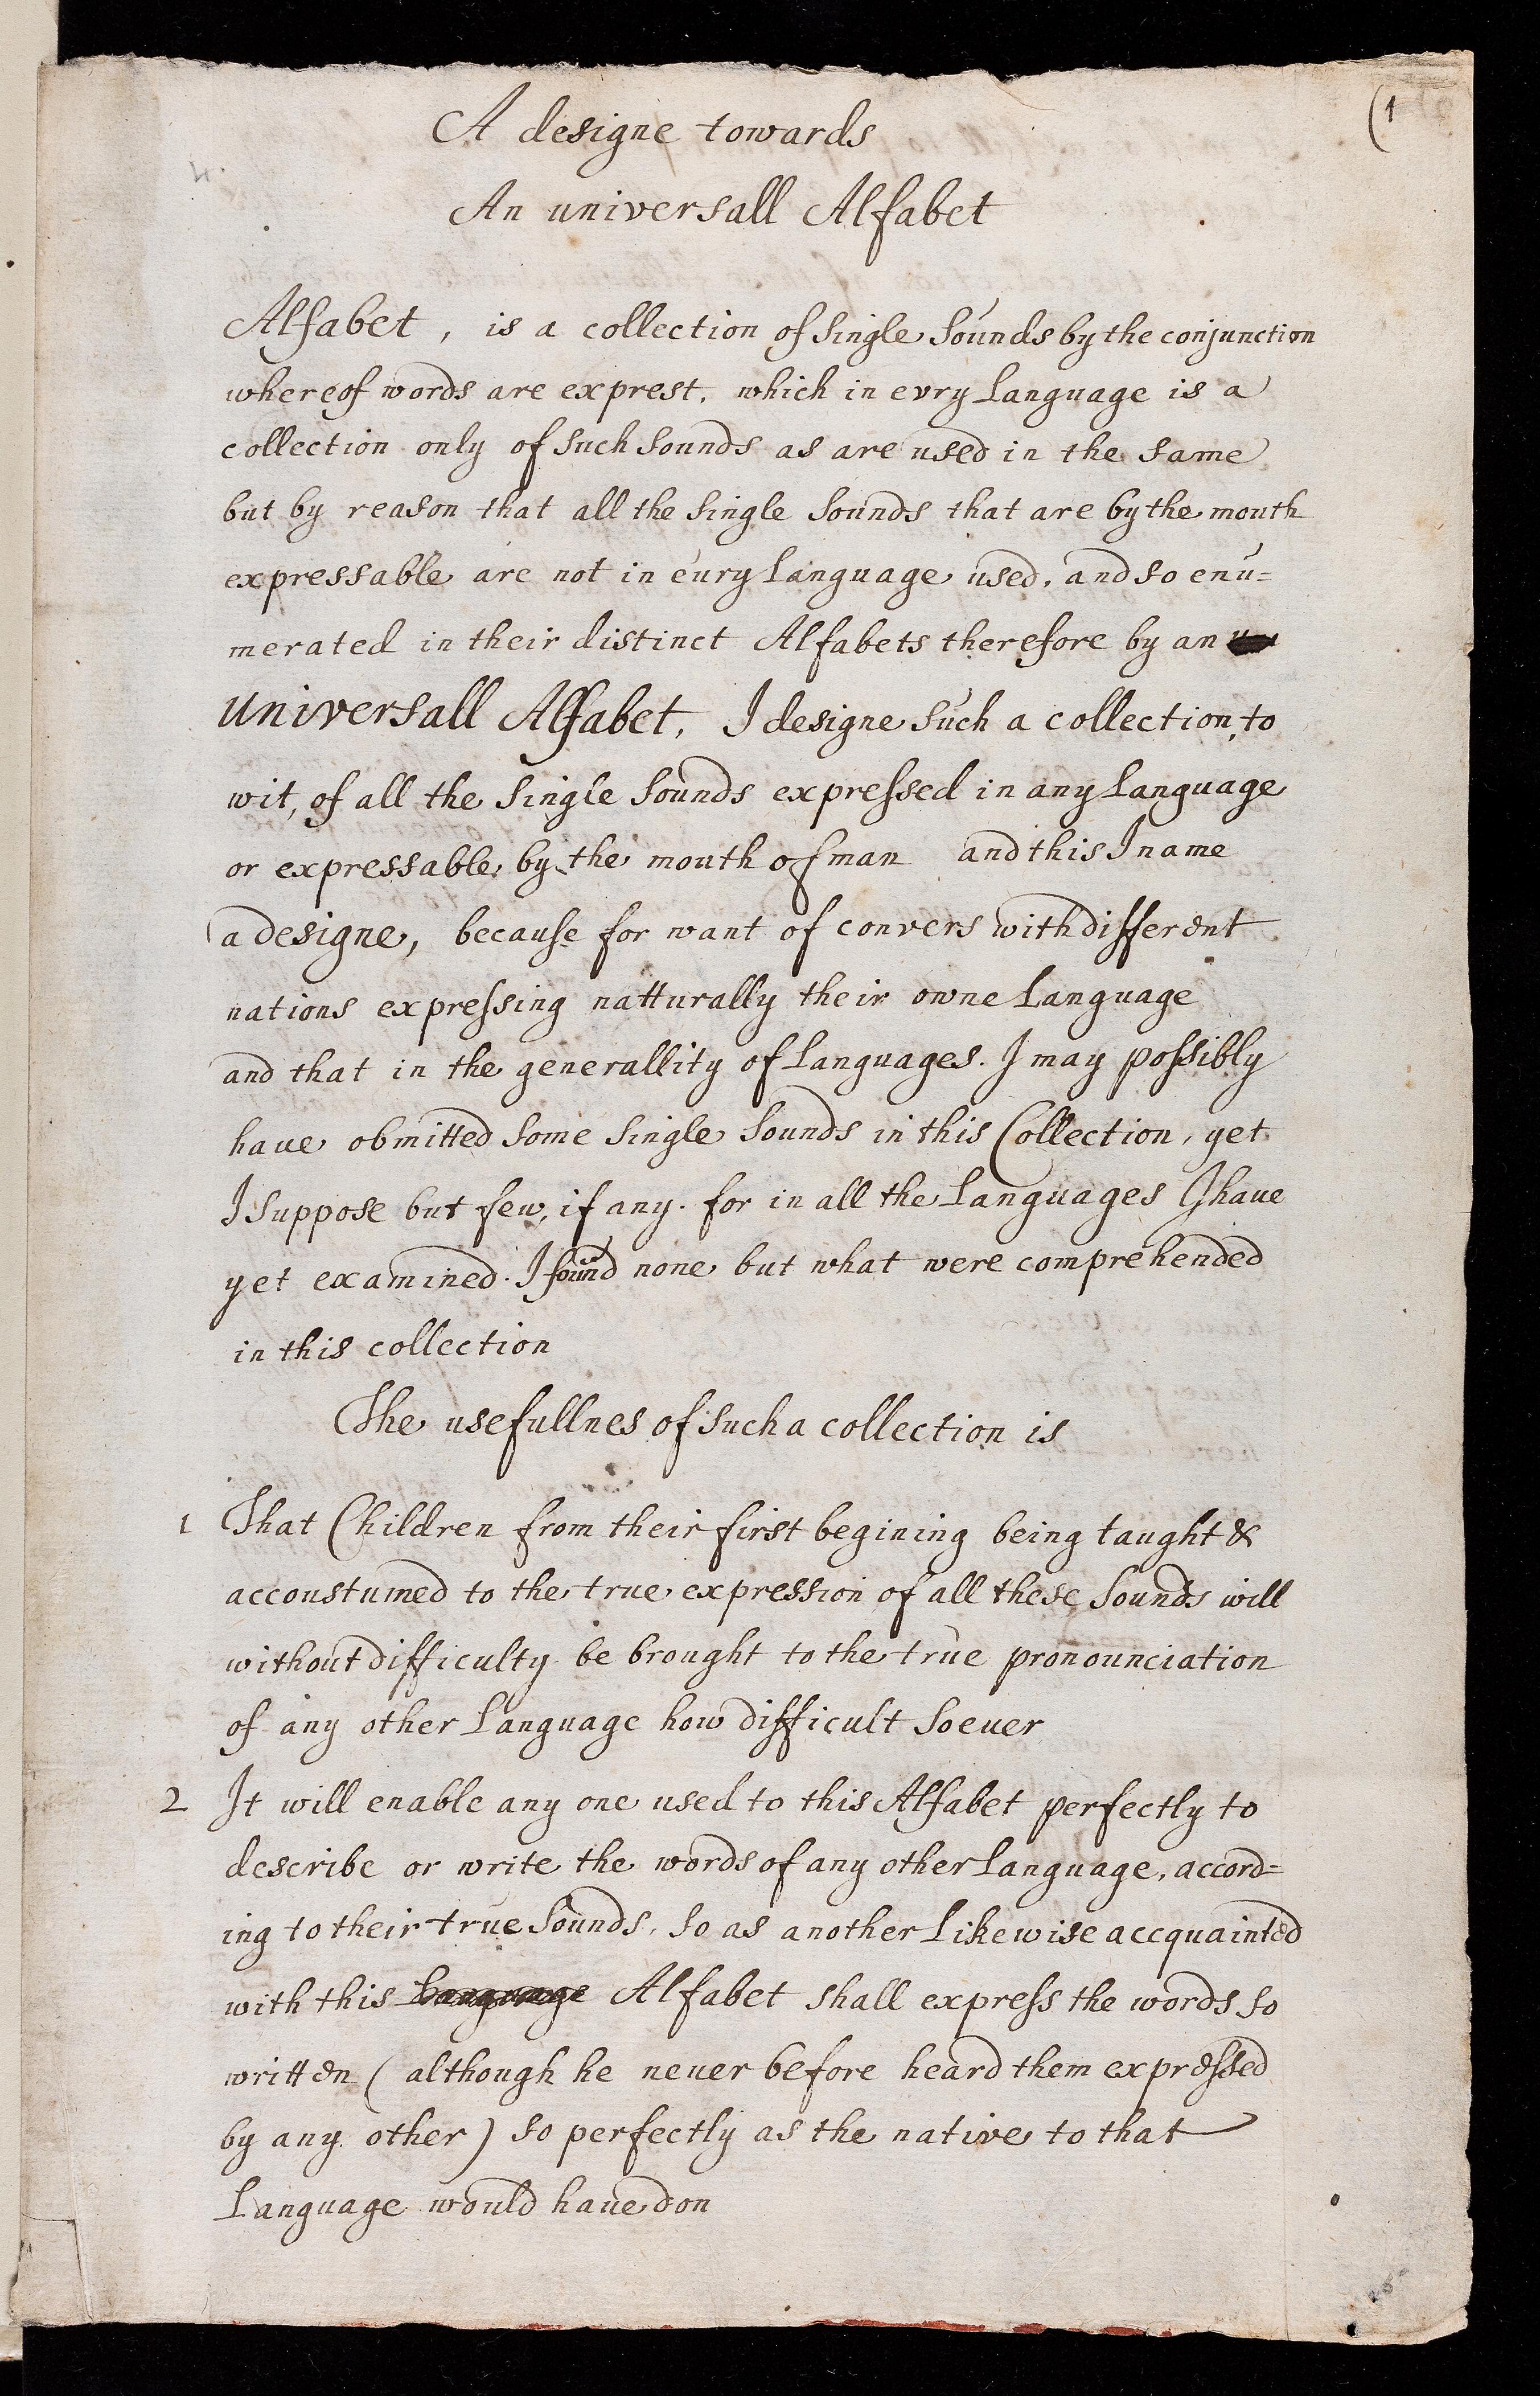 (1
A designe towards
An universall Alfabet
Alfabet, is a collection of single sounds by the conjunction
whereof words are exprest, which in evry language is a
collection only of such sounds as are used in the same
but by reason that all the single sounds that are by the mouth
expressable are not in eury language used, and so enu=
merated in their distinct Alfabets therefore by an
universall Alfabet, I designe such a collection, to
wit, of all the single sounds expressed in any language
or expressable by the mouth of man and this I name
a designe, because for want of convers with different
nations expressing natturally their owne language
and that in the generallity of languages. I may possibly
have obmitted some single sounds in this Collection, yet
I suppose but few, if any. for in all the languages I haue
yet examined. I found none but what were comprehended
in this collection
The usefullnes of such a collection is
1 That Children from their first begining being taught &
accoustumed to the true expression of all these sounds will
without difficulty be brought to the true pronounciation
of any other language how difficult soeuer
2 It will enable any one used to this Alfabet perfectly to
describe or write the words of any other language, accord=
ing to their true sounds, so as another likewise accquainted
with this Language Alfabet shall express the words so
written (although he neuer before heard them expressed
by any other) so perfectly as the native to that
Language would haue don